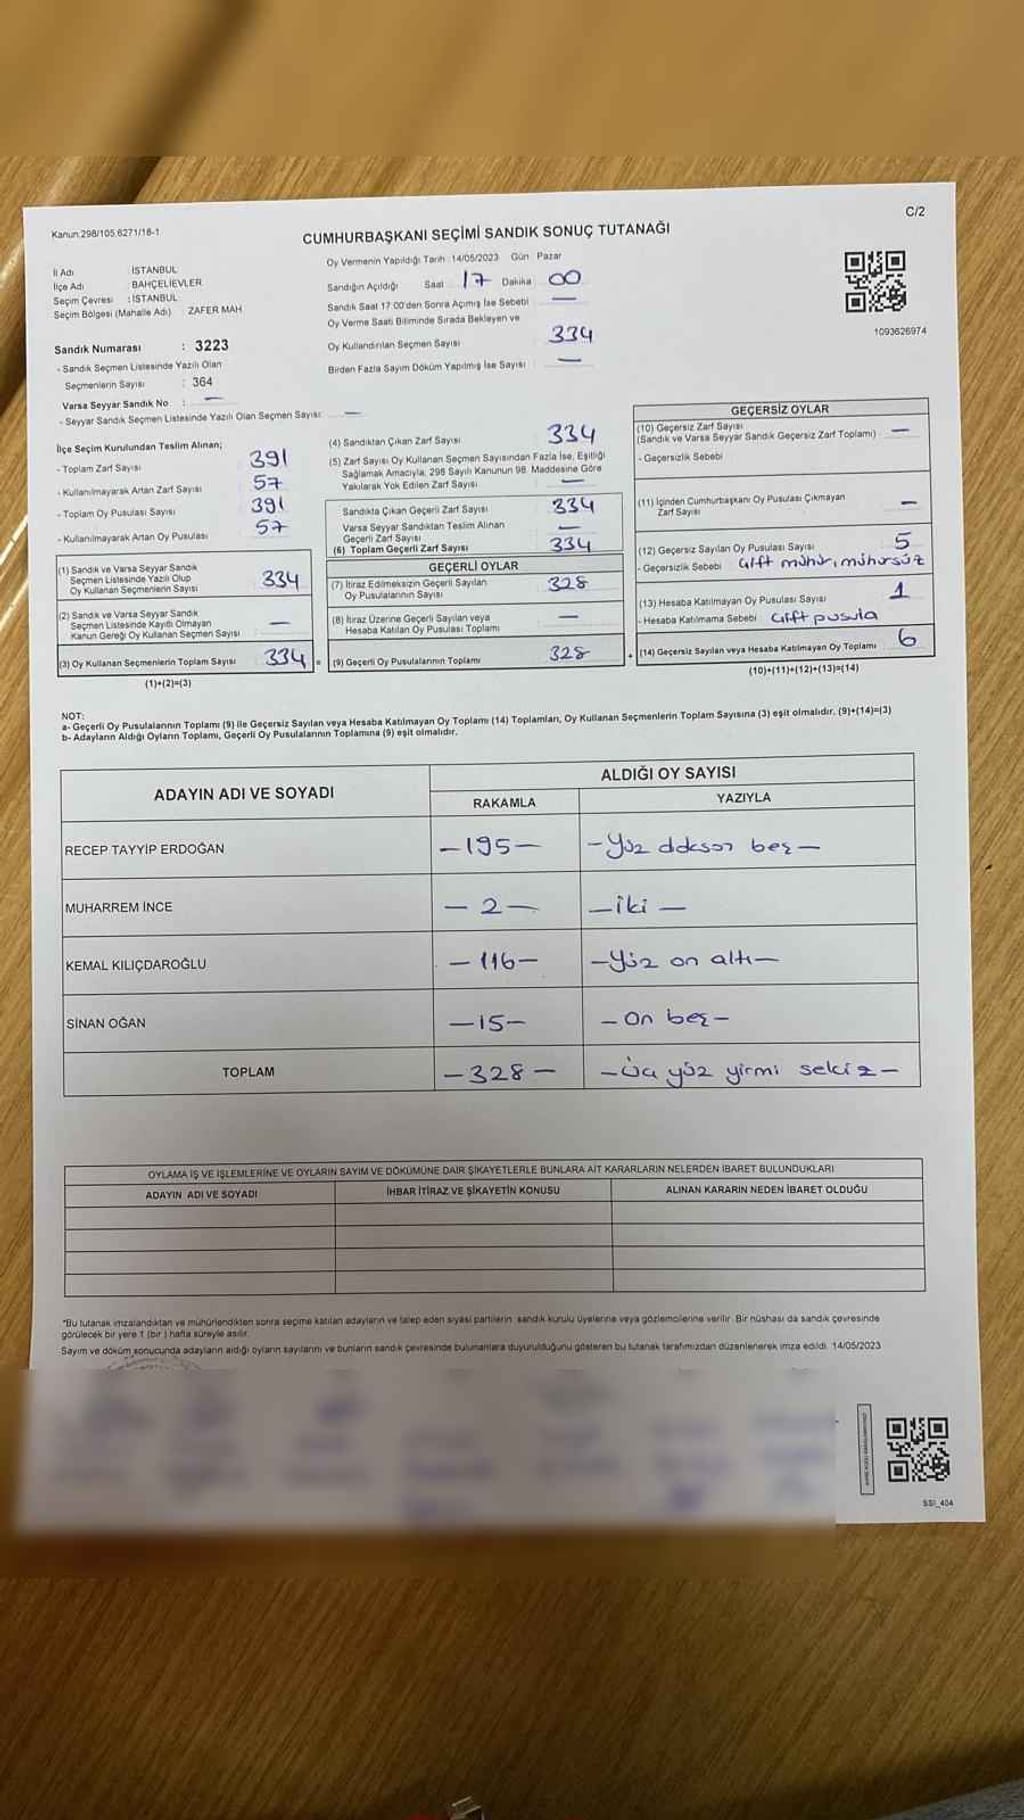 Kanun:298/105,6271/18-1
C/2
CUMHURBAŞKANI SEÇİMİ SANDIK SONUÇ TUTANAĞI
İl Adı İSTANBUL
İlçe Adı BAHÇELİEVLER
Seçim Çevresi : İSTANBUL
Seçim Bölgesi (Mahalle Adı) ZAFER MAH
Sandık Numarası : 3223
- Sandık Seçmen Listesinde Yazılı Olan
Seçmenlerin Sayısı : 364
Varsa Seyyar Sandık No : —
- Seyyar Sandık Seçmen Listesinde Yazılı Olan Seçmen Sayısı: —
Oy Vermenin Yapıldığı Tarih : 14/05/2023 Gün Pazar
Sandığın Açıldığı Saat 17 Dakika 00
Sandık Saat 17:00'den Sonra Açımış İse Sebebi —
Oy Verme Saati Bitiminde Sırada Bekleyen ve
Oy Kullandırılan Seçmen Sayısı 334
Birden Fazla Sayım Döküm Yapılmış İse Sayısı —
1093626974
İlçe Seçim Kurulundan Teslim Alınan;
- Toplam Zarf Sayısı 391
- Kullanılmayarak Artan Zarf Sayısı 57
- Toplam Oy Pusulası Sayısı 391
- Kullanılmayarak Artan Oy Pusulası 57
(1) Sandık ve Varsa Seyyar Sandık
Seçmen Listesinde Yazılı Olup
Oy Kullanan Seçmenlerin Sayısı 334
(2) Sandık ve Varsa Seyyar Sandık
Seçmen Listesinde Kayıtlı Olmayan
Kanun Gereği Oy Kullanan Seçmen Sayısı —
(3) Oy Kullanan Seçmenlerin Toplam Sayısı 334 =
(1)+(2)=(3)
(4) Sandıktan Çıkan Zarf Sayısı 334
(5) Zarf Sayısı Oy Kullanan Seçmen Sayısından Fazla İse, Eşitliği
Sağlamak Amacıyla, 298 Sayılı Kanunun 98. Maddesine Göre
Yakılarak Yok Edilen Zarf Sayısı —
Sandıkta Çıkan Geçerli Zarf Sayısı 334
Varsa Seyyar Sandıktan Teslim Alınan
Geçerli Zarf Sayısı —
(6) Toplam Geçerli Zarf Sayısı 334
GEÇERLİ OYLAR
(7) İtiraz Edilmeksizin Geçerli Sayılan
Oy Pusulalarının Sayısı 328
(8) İtiraz Üzerine Geçerli Sayılan veya
Hesaba Katılan Oy Pusulası Toplamı —
(9) Geçerli Oy Pusulalarının Toplamı 328 +
GEÇERSİZ OYLAR
(10) Geçersiz Zarf Sayısı
(Sandık ve Varsa Seyyar Sandık Geçersiz Zarf Toplamı) —
- Geçersizlik Sebebi
(11) İçinden Cumhurbaşkanı Oy Pusulası Çıkmayan
Zarf Sayısı —
(12) Geçersiz Sayılan Oy Pusulası Sayısı 5
- Geçersizlik Sebebi Çift mühür, mühürsüz
(13) Hesaba Katılmayan Oy Pusulası Sayısı 1
- Hesaba Katılmama Sebebi Çift pusula
(14) Geçersiz Sayılan veya Hesaba Katılmayan Oy Toplamı 6
(10)+(11)+(12)+(13)=(14)
NOT:
a- Geçerli Oy Pusulalarının Toplamı (9) ile Geçersiz Sayılan veya Hesaba Katılmayan Oy Toplamı (14) Toplamları, Oy Kullanan Seçmenlerin Toplam Sayısına (3) eşit olmalıdır. (9)+(14)=(3)
b- Adayların Aldığı Oyların Toplamı, Geçerli Oy Pusulalarının Toplamına (9) eşit olmalıdır.
ADAYIN ADI VE SOYADI
ALDIĞI OY SAYISI
RAKAMLA YAZIYLA
RECEP TAYYİP ERDOĞAN -195- -Yüz doksan beş-
MUHARREM İNCE -2- -iki-
KEMAL KILIÇDAROĞLU -116- -Yüz on altı-
SİNAN OĞAN -15- -On beş-
TOPLAM -328- -Üç yüz yirmi sekiz-
OYLAMA İŞ VE İŞLEMLERİNE VE OYLARIN SAYIM VE DÖKÜMÜNE DAİR ŞİKAYETLERLE BUNLARA AİT KARARLARIN NELERDEN İBARET BULUNDUKLARI
ADAYIN ADI VE SOYADI İHBAR İTİRAZ VE ŞİKAYETİN KONUSU ALINAN KARARIN NEDEN İBARET OLDUĞU
*Bu tutanak imzalandıktan ve mühürlendikten sonra seçime katılan adayların ve talep eden siyasi partilerin sandık kurulu üyelerine veya gözlemcilerine verilir. Bir nüshası da sandık çevresinde
görülecek bir yere 1 (bir) hafta süreyle asılır.
Sayım ve döküm sonucunda adayların aldığı oyların sayılarını ve bunların sandık çevresinde bulunanlara duyurulduğunu gösteren bu tutanak tarafımızdan düzenlenerek imza edildi. 14/05/2023
SSI_404